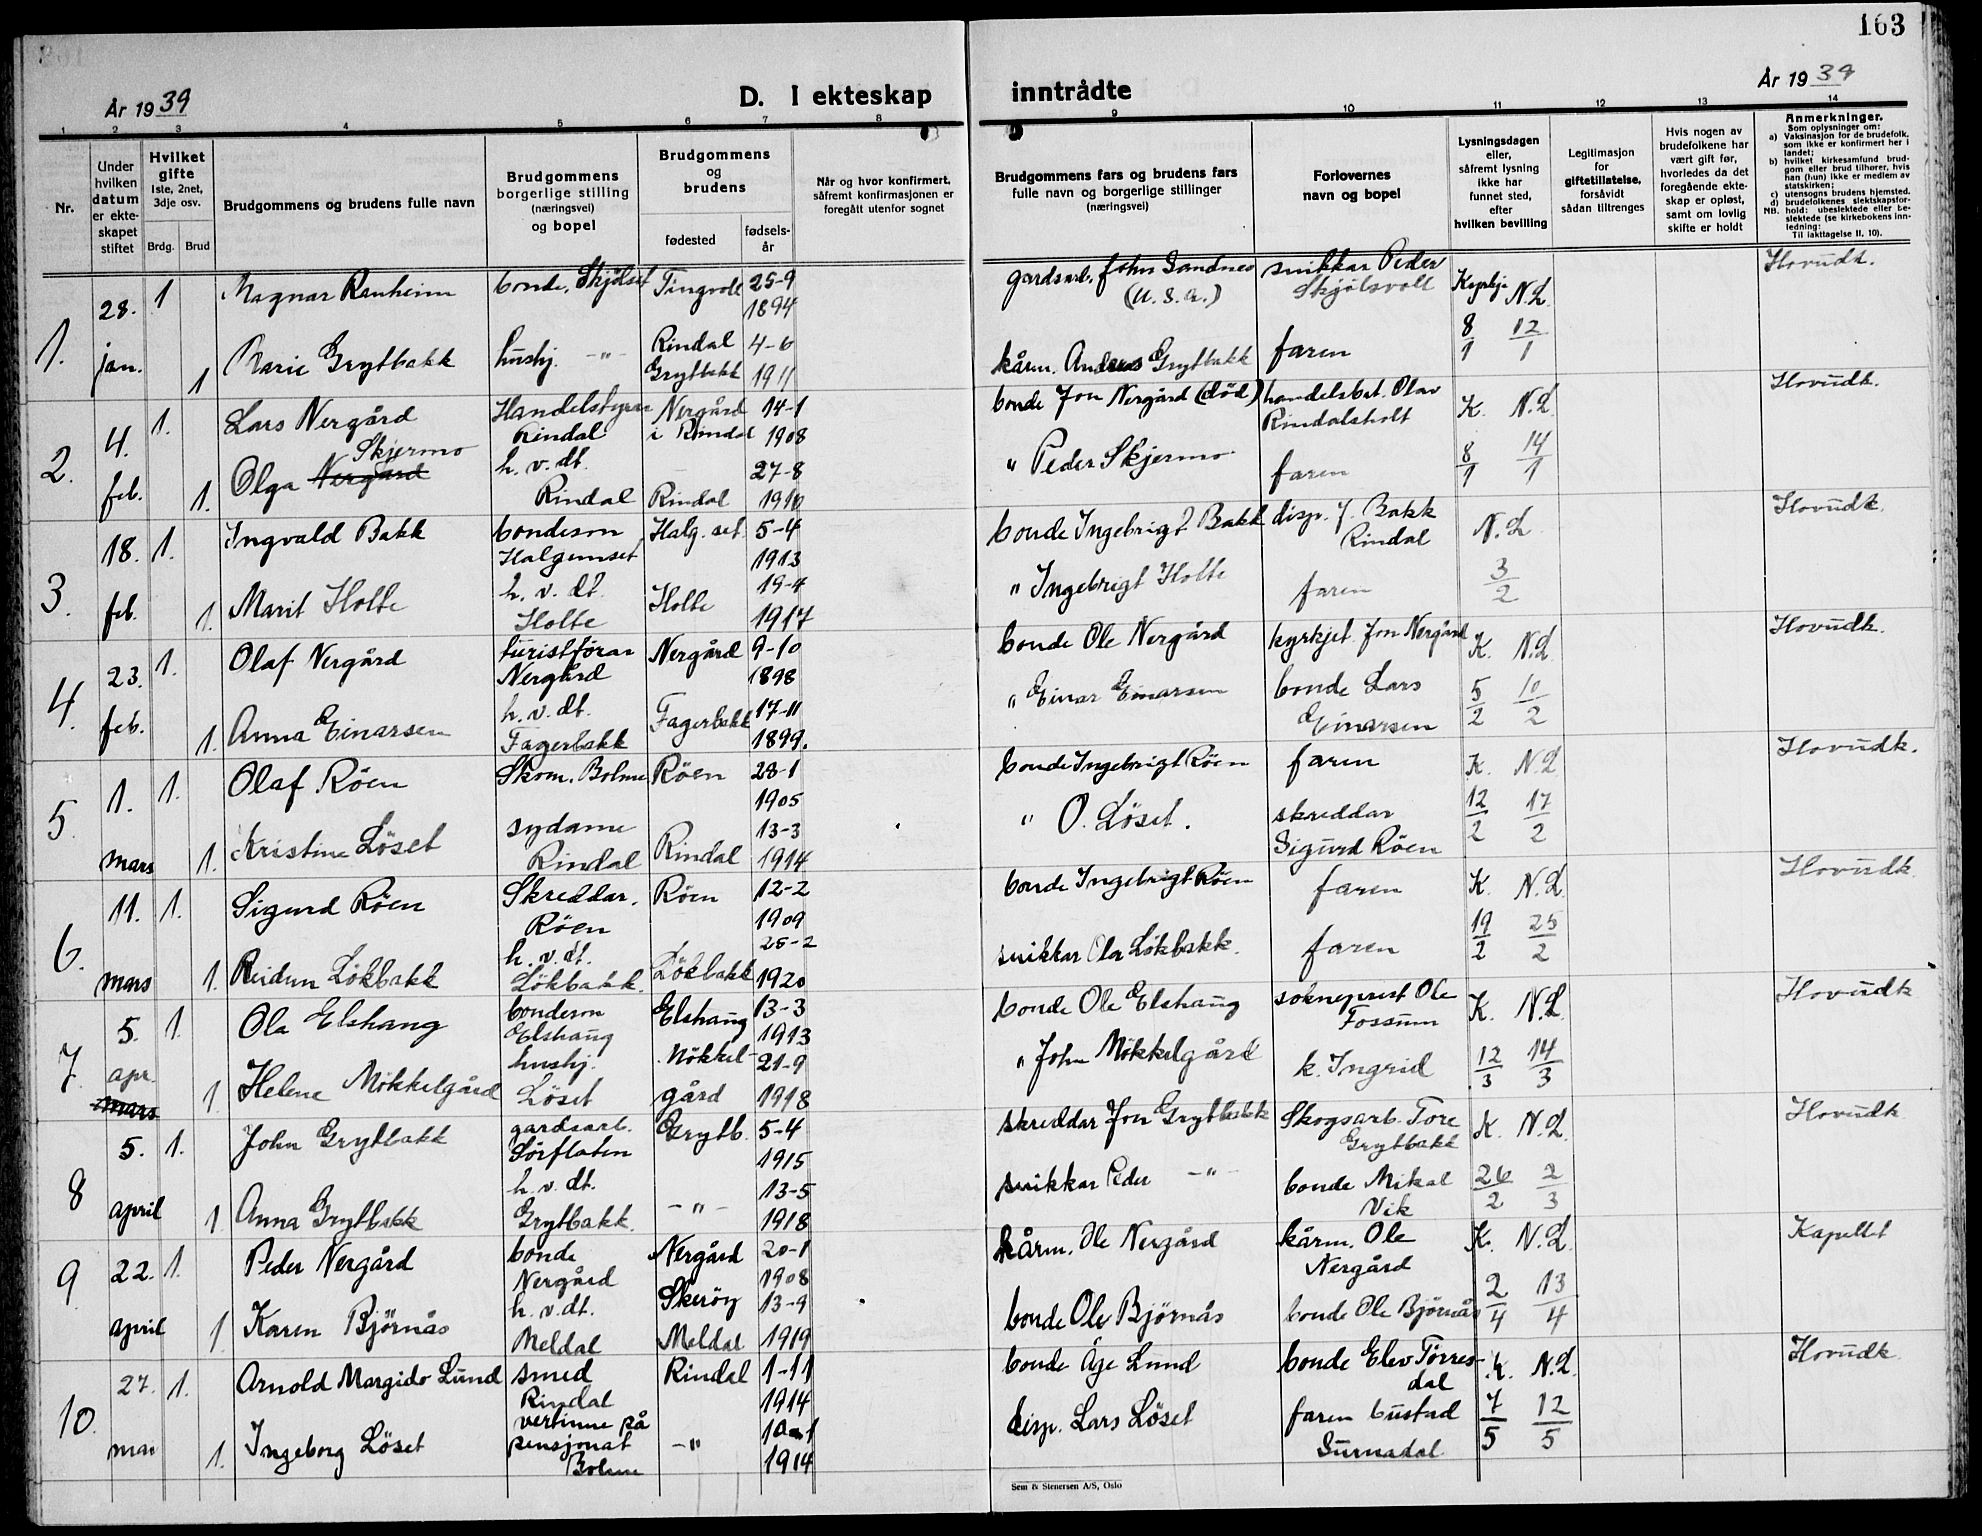 163
År 1939
D. I ekteskap inntrådte
År 1939
1 2 3 4 5 6 7 8 9 10 11 12 13 14
Nr.
Under hvilken datum er ekteskapet stiftet
Hvilket gifte
1ste, 2net, 3dje osv.
Brdg. Brud
Brudgommens og brudens fulle navn
Brudgommens borgerlige stilling (næringsvei) og bopel
Brudgommens og brudens
fødested
fødselsår
Når og hvor konfirmert, såfremt konfirmasjonen er foregått utenfor sognet
Brudgommens fars og brudens fars fulle navn og borgerlige stillinger (næringsvei)
Forlovernes navn og bopel
Lysningsdagen eller, såfremt lysning ikke har funnet sted, efter hvilken bevilling
Legitimasjon for giftetillatelse, forsåvidt sådan tiltrenges
Hvis nogen av brudefolkene har vært gift før, hvorledes da det foregående ekteskap er opløst, samt om lovlig skifte er holdt
Anmerkninger.
Som oplysninger om:
a) Vaksinasjon for de brudefolk, som ikke er konfirmert her i landet;
b) hvilket kirkesamfund brudgom eller brud tilhører, hvis han (hun) ikke er medlem av statskirken;
c) utensogns brudens hjemsted.
d) brudefolkenes slektskapsforhold: ubeslektede eller beslektede (se kirkebokens innledning:
NB.
Til iakttagelse II, 10).
1. 28. jan. 1 Magnar Ranheim bonde, Skjölset Tingvoll 25-9 1894 gardsarb. John Sandnes (U.S.A.) snikkar Peder Skjölsvoll Kyrkje N.L. Hovudk.
1 Marie Grytbakk hushj. -"- Rindal Grytbakk 4-6 1911 kårm. Anders Grytbakk faren 8/1 12/1
2. 4. feb. 1. Lars Nergård Handelstyrar Rindal Nergård i Rindal 14-1 1908 bonde Jon Nergård (död) handelsbet. Olav Rindalsholt K. N.L. Hovudk.
1. Olga Nergård Skjermo h. v. dt. Rindal Rindal 27-8 1910 " Peder Skjermo faren 8/1 14/1
3. 18. feb. 1. Ingvald Bakk bondeson Halgumset Halg. set 5-4 1913 bonde Ingebrigt Bakk disp. J. Bakk Rindal N.L. Hovudk.
1. Marit Holte h. v. dt. Holte Holte 19-4 1917 " Ingebrigt Holte faren 3/2
4. 23. feb. 1. Olaf Nergård turistförar Nergård Nergård 9-10 1898 bonde Ole Nergård kyrkjet. Jon Nergård K. N.L. Hovudk.
1. Anna Einarsen h. v. dt. Fagerbakk Fagerbakk 17-11 1899. " Einar Einarsen bonde Lars Einarsen 5/2 10/2
5. 1. mars 1. Olaf Röen Skom. Bolme Röen 28-1 1905 bonde Ingebrigt Röen faren K. N.L. Hovudk.
1. Kristine Löset sydame Rindal Rindal 13-3 1914 " O. Löset. skreddar Sigurd Röen 12/2 17/2
6. 11. mars 1. Sigurd Röen Skreddar. Röen Röen 12-2 1909 bonde Ingebrigt Röen faren K. N.L. Hovudk.
1. Reidun Lökbakk h. v. dt. Lökbakk. Lökbakk 25-2 1920 snikkar Ola Lökbakk. faren 19/2 25/2
7. 5. apr. mars 1. Ola Elshaug bondeson Elshaug Elshaug 13-3 1913 bonde Ole Elshaug sokneprest Ole Fossum K. N.L. Hovudk
1 Helene Mökkelgård hushj. Löset Mökkelgård 21-9 1918 " John Mökkelgård k. Ingrid 12/3 14/3
8 5. april 1. John Grytbakk gardsarb. Sörflaten Grytb. 5-4 1915 skreddar Jon Grytbakk Skogsarb. Tore Grytbakk K. N.L. Hovudk
1 Anna Grytbakk h. v. dt. Grytbakk. -"- 13-5 1918 snikkar Peder -"- bonde Mikal Vik 26/2 2/3
9 22. april 1. Peder Nergård bonde Nergård Nergård 20-1 1908 kårm. Ole Nergård kårm. Ole Nergård K. N.L. Kapellet
1 Karen Björnås h. v. dt. Meldal Skeröy Meldal 13-9 1919 bonde Ole Björnås bonde Ole Björnås 2/4 13/4
10. 27. mai 1. Arnold Margido Lund smed Rindal Rindal 1-11 1914 bonde Åge Lund bonde Elev Törresdal K. N.L. Hovudk
1. Ingeborg Löset vertinne på pensjonat Bolme -"- 10-1 1914 disp. Lars Löset faren bustad Surnadal. 7/5 12/5
Sem & Stenersen A/S, Oslo